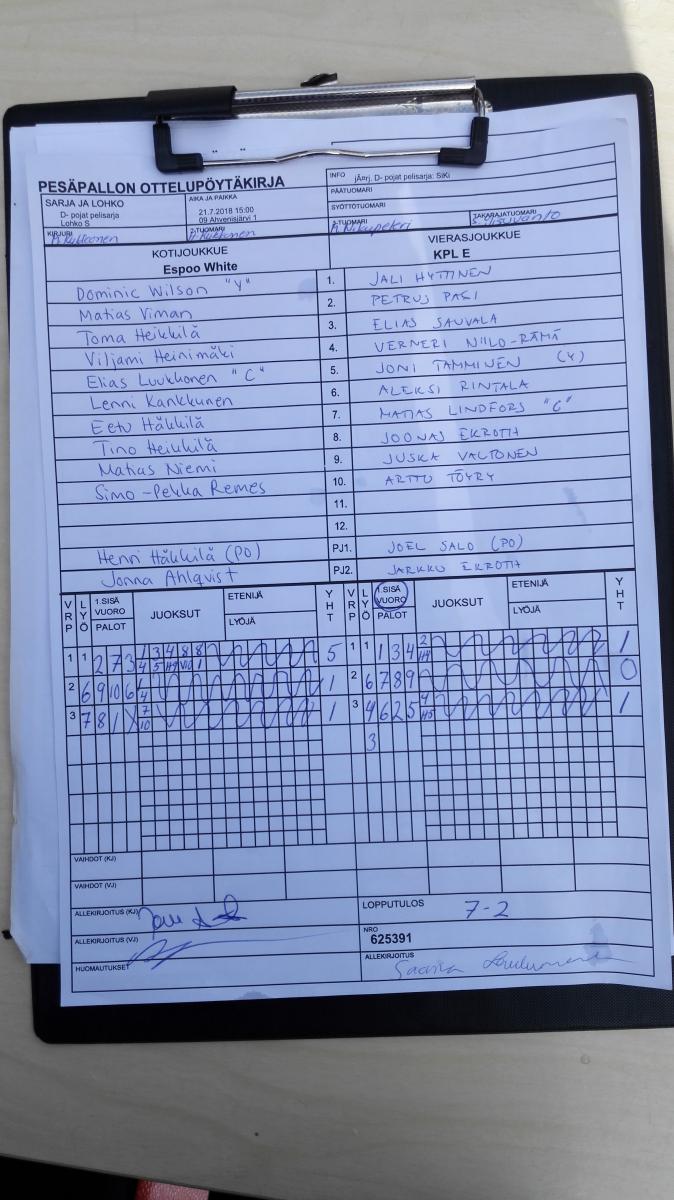 PESÄPALLON OTTELUPÖYTÄKIRJA
INFO jÄnrj, D- pojat pelisarja: SiKi
PÄÄTUOMARI
SYÖTTÖTUOMARI
SARJA JA LOHKO
D- pojat pelisarja
Lohko S
AIKA JA PAIKKA
21.7.2018 15:00
09 Ahvenisjärvi 1
KIRJURI
2-TUOMARI
3-TUOMARI
TAKARAJATUOMARI
KOTIJOUKKUE VIERASJOUKKUE
Espoo White KPL E
Dominic Wilson "Y" 1. JALI HYTTINEN
Matias Viman 2. PETRUS PASI
Toma Heikkilä 3. ELIAS SAUVALA
Viljami Heinimäki 4. VERNERI NIILO-RÄMÄ
Elias Luukkonen "C" 5. JONI TAMMINEN (Y)
Lenni Kankkunen 6. ALEKSI RINTALA
Eetu Häkkilä 7. MATIAS LINDFORS "C"
Tino Heikkilä 8. JOONAS EKROTH
Matias Niemi 9. JUSKA VALTONEN
Simo-Pekka Remes 10. ARTTU TÖYRY
11.
12.
Henri Häkkilä (PO) PJ1. JOEL SALO (PO)
Jonna Ahlqvist PJ2. JARKKO EKROTH
VRP LYÖ 1.SISÄ VUORO PALOT JUOKSUT ETENIJÄ LYÖJÄ YHT VRP LYÖ 1.SISÄ VUORO PALOT JUOKSUT ETENIJÄ LYÖJÄ YHT
1 1 2 7 3 5 1 1 1 3 4 1
2 6 9 10 6 1 2 6 7 8 9 0
3 7 8 1 X 1 3 4 6 2 5 1
3
VAIHDOT (KJ)
VAIHDOT (VJ)
ALLEKIRJOITUS (KJ) LOPPUTULOS 7-2
ALLEKIRJOITUS (VJ) NRO 625391
HUOMAUTUKSET ALLEKIRJOITUS